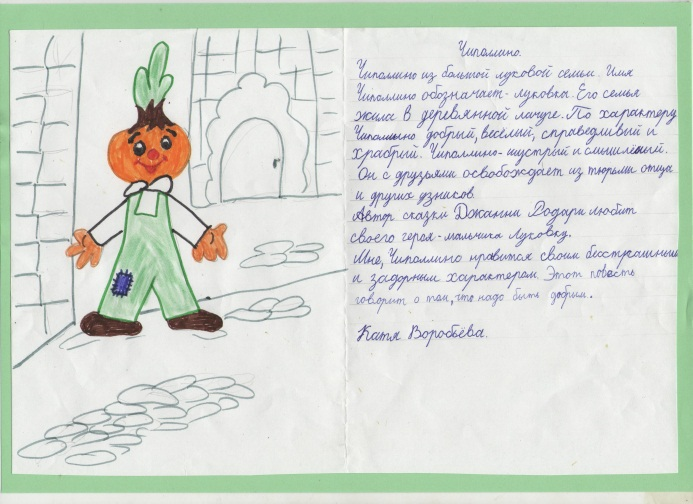 Чиполлино.
Чиполлино из большой луковой семьи. Имя
Чиполлино обозначает - луковка. Его семья
жила в деревянной лачуге. По характеру
Чиполлино добрый, весёлый, справедливый и
храбрый. Чиполлино - шустрый и смышлёный.
Он с друзьями освобождает из тюрьмы отца
и других узников.
Автор сказки Джанни Родари любит
своего героя - мальчика Луковку.
Мне, Чиполлино нравится своим бесстрашным
и задорным характером. Этот повесть
говорит о том, что надо быть добрым.
Катя Воробьёва.